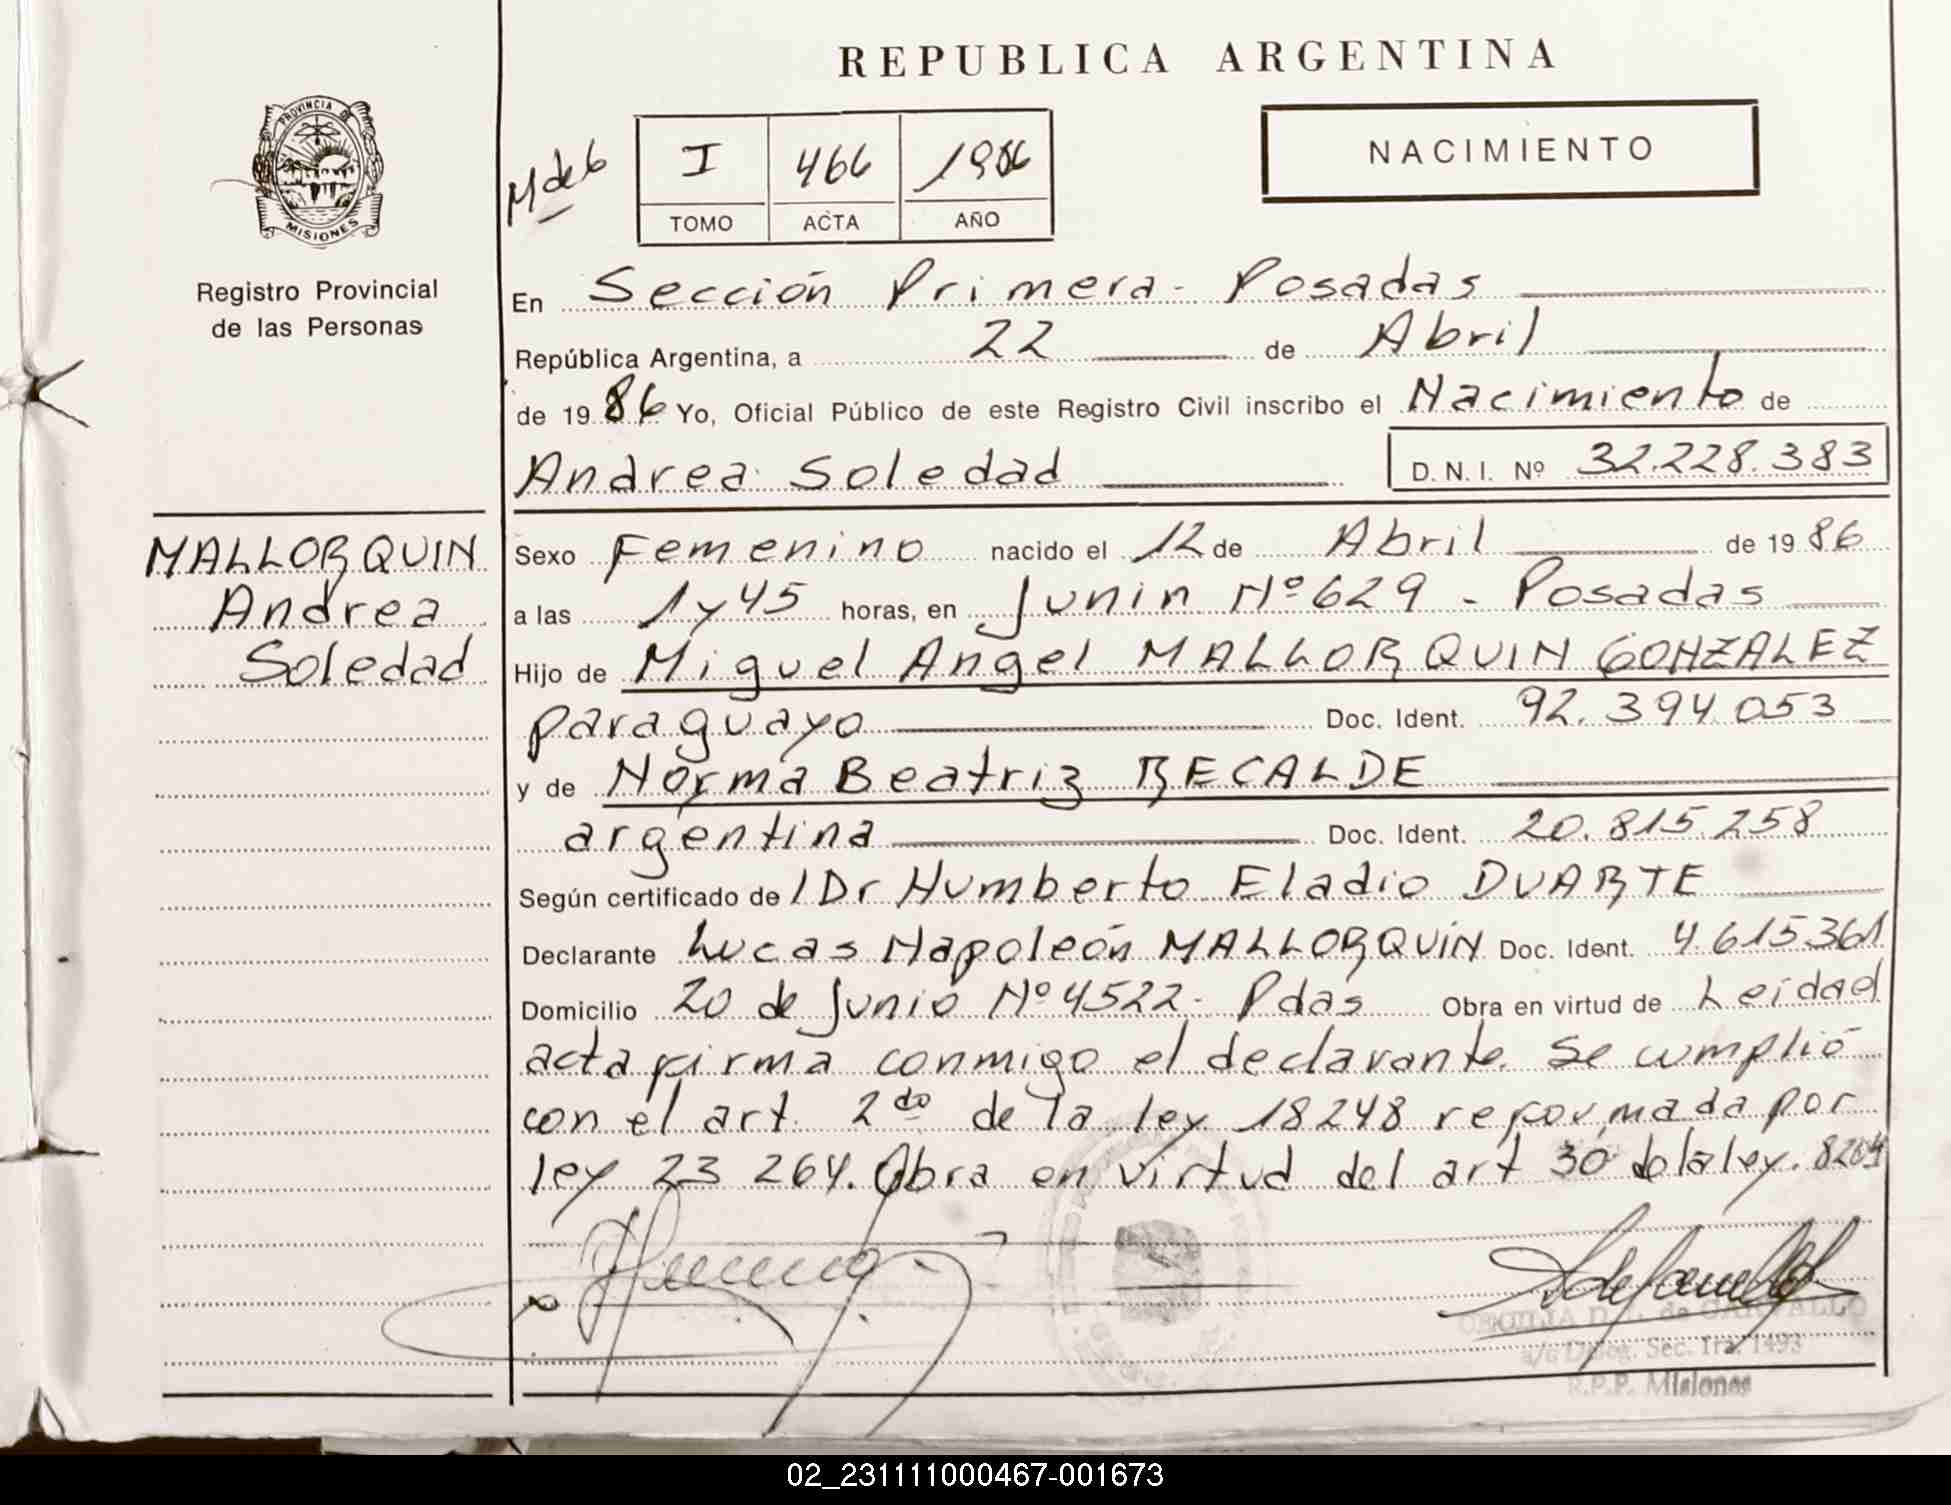 REPUBLICA ARGENTINA
PROVINCIA DE
MISIONES
Registro Provincial
de las Personas
M de 6
I 466 1986
TOMO ACTA AÑO
NACIMIENTO
En Sección Primera - Posadas
República Argentina, a 22 de Abril
de 1986 Yo, Oficial Público de este Registro Civil inscribo el Nacimiento de
Andrea Soledad D.N.I. Nº 32.228.383
MALLORQUIN
Andrea
Soledad
Sexo Femenino nacido el 12 de Abril de 1986
a las 1 y 45 horas, en Junin Nº 629 - Posadas
Hijo de Miguel Angel MALLORQUIN GONZALEZ
paraguayo Doc. Ident. 92.394.053
y de Norma Beatriz RECALDE
argentina Doc. Ident. 20.815.258
Según certificado de l Dr Humberto Eladio DUARTE
Declarante Lucas Napoleón MALLORQUIN Doc. Ident. 4.615361
Domicilio 20 de Junio Nº 4522 - Pdas Obra en virtud de Leida el
acta firma conmigo el declarante. Se cumplió
con el art. 2do de la ley 18248 reformada por
ley 23 264. Obra en virtud del art 30 de la ley. 8204
CECILIA D. de
Sec. 1ra. 1493
R.P.P. Misiones
02_231111000467-001673